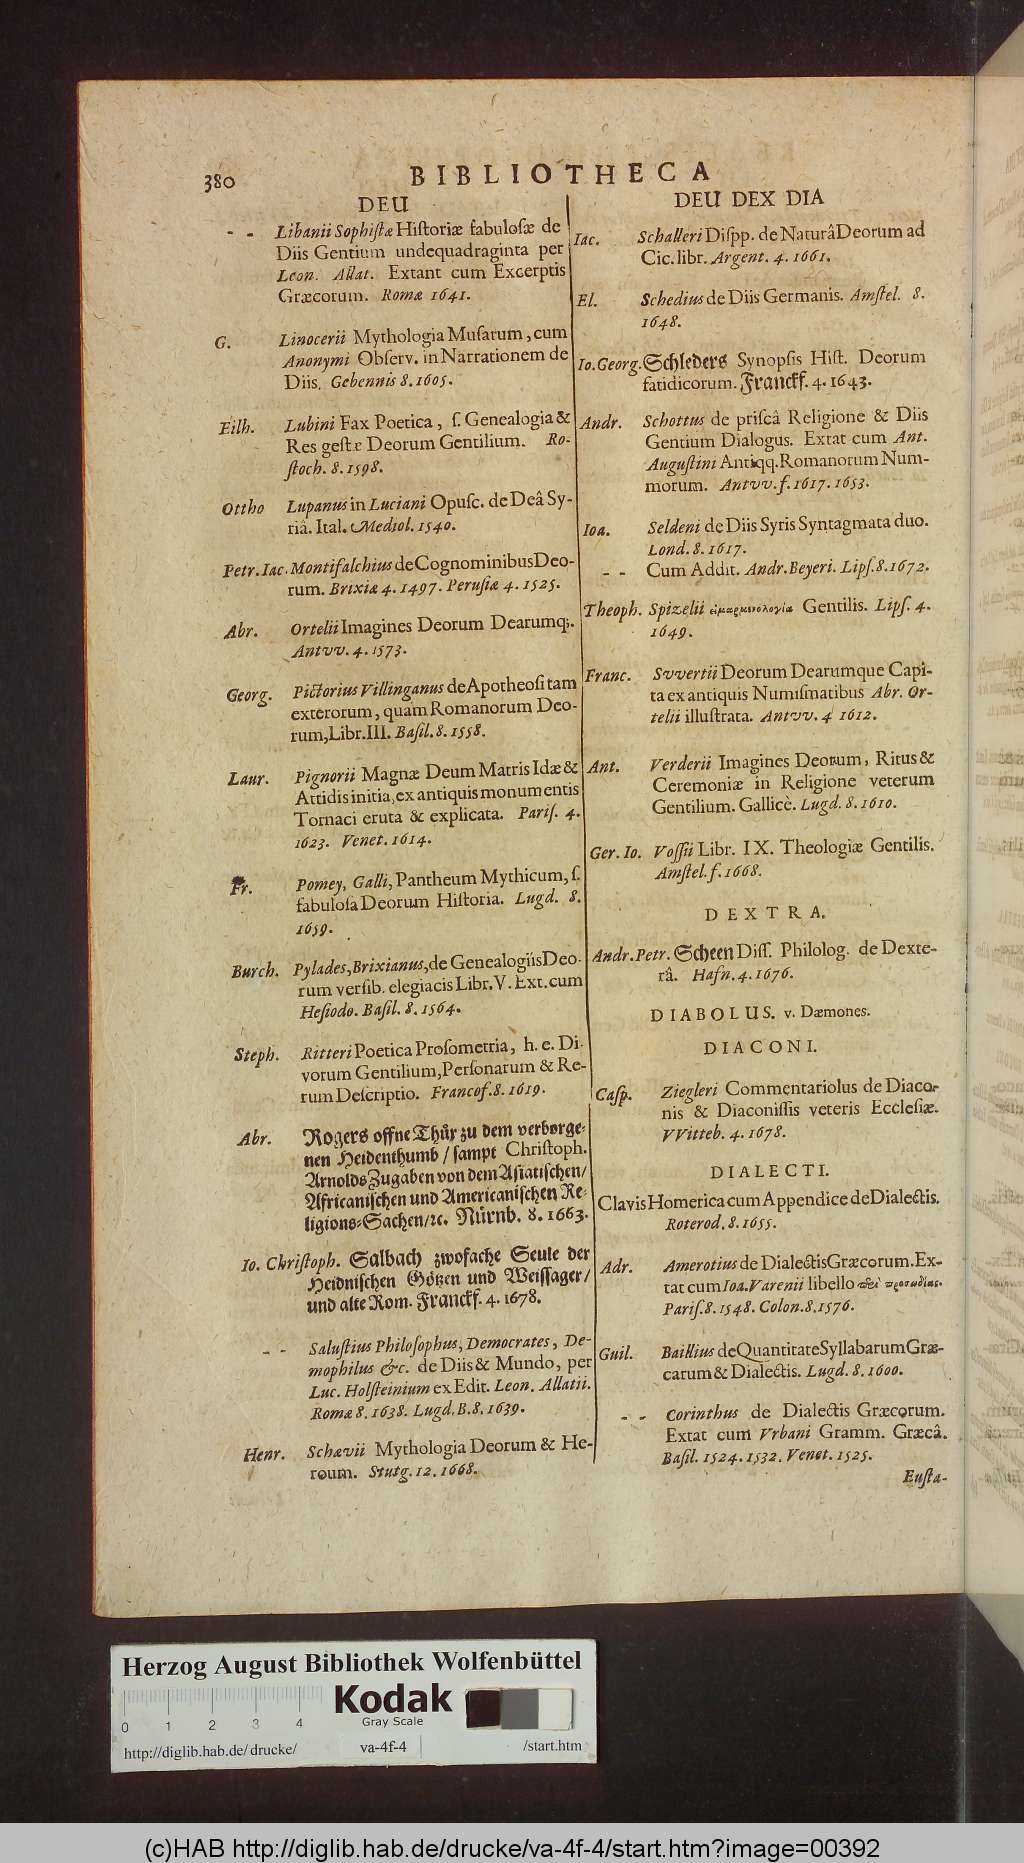 380 BIBLIOTHECA
DEU
- - Libanii Sophistæ Historiæ fabulosæ de
Diis Gentium undequadraginta per
Leon. Allat. Extant cum Excerptis
Græcorum. Romæ 1641.
G. Linocerii Mythologia Musarum, cum
Anonymi Observ. in Narrationem de
Diis. Gebennis 8. 1605.
Eilh. Lubini Fax Poetica, s. Genealogia &
Res gestæ Deorum Gentilium. Ro-
stoch. 8. 1598.
Ottho Lupanus in Luciani Opusc. de Deâ Sy-
riâ. Ital. Mediol. 1540.
Petr. Iac. Montifalchius de Cognominibus Deo-
rum. Brixiæ 4. 1497. Perusiæ 4. 1525.
Abr. Ortelii Imagines Deorum Dearumq;.
Antvv. 4. 1573.
Georg. Pictorius Villinganus de Apotheosi tam
exterorum, quam Romanorum Deo-
rum, Libr. III. Basil. 8. 1558.
Laur. Pignorii Magnæ Deum Matris Idææ &
Attidis initia, ex antiquis monumentis
Tornaci eruta & explicata. Paris. 4.
1623. Venet. 1614.
Fr. Pomey, Galli, Pantheum Mythicum, s.
fabulosa Deorum Historia. Lugd. 8.
1659.
Burch. Pylades, Brixianus, de Genealogiis Deo-
rum versib. elegiacis Libr. V. Ext. cum
Hesiodo. Basil. 8. 1564.
Steph. Ritteri Poetica Prosometria, h. e. Di-
vorum Gentilium, Personarum & Re-
rum Descriptio. Francof. 8. 1619.
Abr. Rogers offne Thür zu dem verborge-
nen Heidenthumb / sampt Christoph.
Arnolds Zugaben von dem Asiatischen/
Africanischen und Americanischen Re-
ligions-Sachen/ ꝛc. Nürnb. 8. 1663.
Io. Christoph. Salbach zwofache Seule der
Heidnischen Götzen und Weissager/
und alte Rom. Franckf. 4. 1678.
- - Salustius Philosophus, Democrates, De-
mophilus &c. de Diis & Mundo, per
Luc. Holsteinium ex Edit. Leon. Allatii.
Romæ 8. 1638. Lugd. B. 8. 1639.
Henr. Schævii Mythologia Deorum & He-
roum. Stutg. 12. 1668.
DEU DEX DIA
Iac. Schalleri Dispp. de Naturâ Deorum ad
Cic. libr. Argent. 4. 1661.
El. Schedius de Diis Germanis. Amstel. 8.
1648.
Io. Georg. Schleders Synopsis Hist. Deorum
fatidicorum. Franckf. 4. 1643.
Andr. Schottus de priscâ Religione & Diis
Gentium Dialogus. Extat cum Ant.
Augustini Antiqq. Romanorum Num-
morum. Antvv. f. 1617. 1653.
Ioa. Seldeni de Diis Syris Syntagmata duo.
Lond. 8. 1617.
- - Cum Addit. Andr. Beyeri. Lips. 8. 1672.
Theoph. Spizelii εἱμαρμενολογία Gentilis. Lips. 4.
1649.
Franc. Svvertii Deorum Dearumque Capi-
ta ex antiquis Numismatibus Abr. Or-
telii illustrata. Antvv. 4 1612.
Ant. Verderii Imagines Deorum, Ritus &
Ceremoniæ in Religione veterum
Gentilium. Gallicè. Lugd. 8. 1610.
Ger. Io. Vossii Libr. IX. Theologiæ Gentilis.
Amstel. f. 1668.
DEXTRA.
Andr. Petr. Scheen Diss. Philolog. de Dexte-
râ. Hafn. 4. 1676.
DIABOLUS. v. Dæmones.
DIACONI.
Casp. Ziegleri Commentariolus de Diaco-
nis & Diaconissis veteris Ecclesiæ.
VVitteb. 4. 1678.
DIALECTI.
Clavis Homerica cum Appendice de Dialectis.
Roterod. 8. 1655.
Adr. Amerotius de Dialectis Græcorum. Ex-
tat cum Ioa. Varenii libello περὶ προσωδίας.
Paris. 8. 1548. Colon. 8. 1576.
Guil. Baillius de Quantitate Syllabarum Græ-
carum & Dialectis. Lugd. 8. 1600.
- - Corinthus de Dialectis Græcorum.
Extat cum Vrbani Gramm. Græcâ.
Basil. 1524. 1532. Venet. 1525.
Eusta-
Herzog August Bibliothek Wolfenbüttel
Kodak
Gray Scale
0 1 2 3 4
http://diglib.hab.de/drucke/ va-4f-4 /start.htm
(c)HAB http://diglib.hab.de/drucke/va-4f-4/start.htm?image=00392